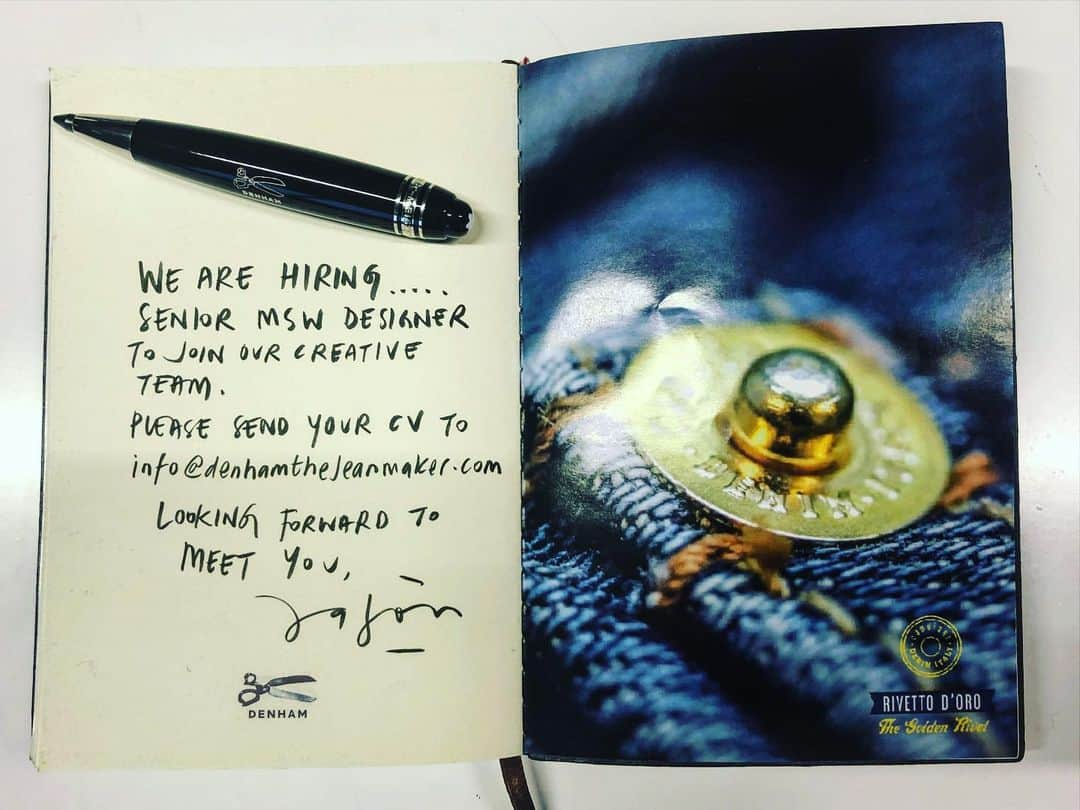 DENHAM
WE ARE HIRING.....
SENIOR MSW DESIGNER
TO JOIN OUR CREATIVE
TEAM.
PLEASE SEND YOUR CV TO
info@denhamtheJeanmaker.com
LOOKING FORWARD TO
MEET YOU,
Jason
DENHAM
DENIM
DENIM ITALY
RIVETTO D'ORO
The Golden Rivet